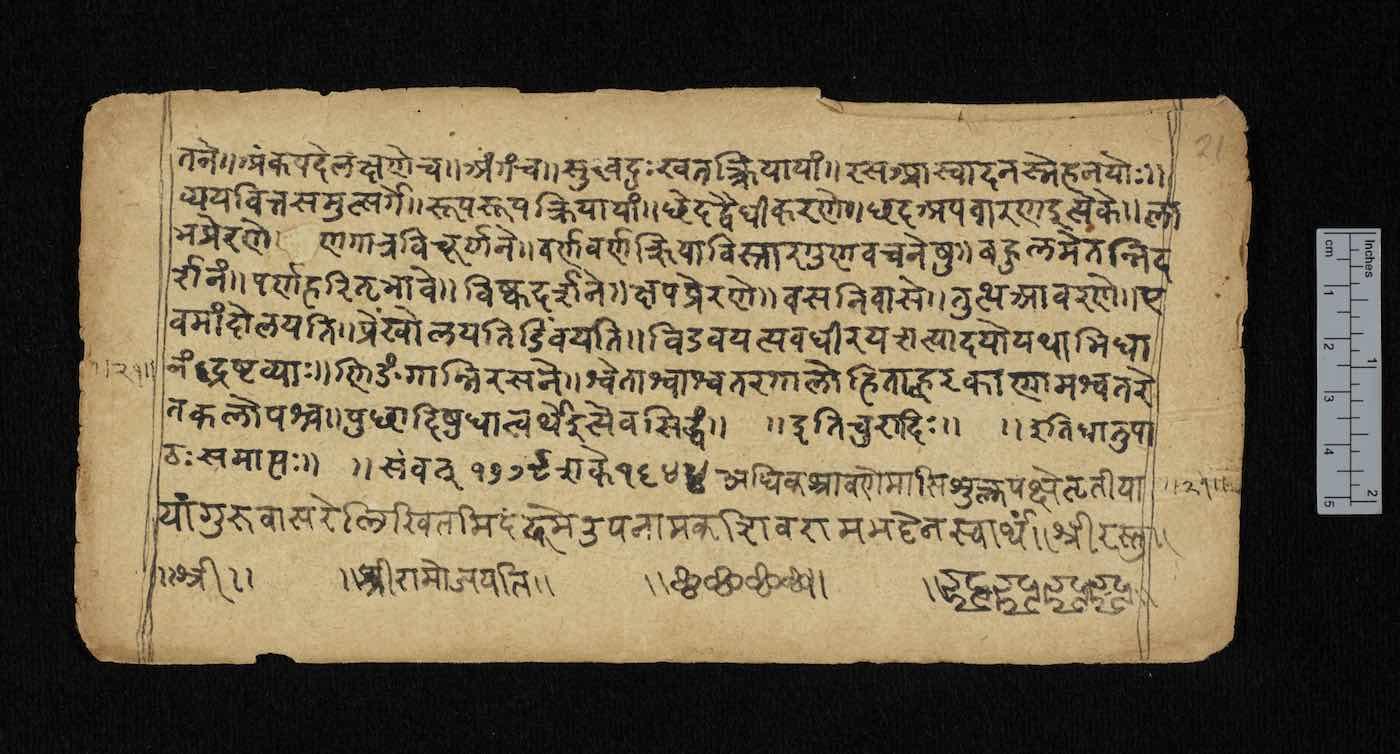 तने॥अंकपदेलक्षणेच॥अंगंच॥सुखदुःखतत्क्रियायां॥रसआस्वादनस्नेहनयोः॥
व्ययवित्तसमुत्सर्गे॥रूपरूपक्रियायां॥छेदद्वैधीकरणे॥छदअपवारणइत्येके॥ला
भप्रेरणे॥ णगात्रविचूर्णने॥वर्णवर्णक्रियाविस्तारगुणवचनेषु॥बहुलमेतन्निद
र्शनं॥पर्णहरितभावे॥विष्कदर्शने॥क्षेपप्रेरणे॥वसनिवासे॥तुत्थआवरणे॥ए
वमांदोलयति॥प्रेंखोलयति॥विडंबयति॥अवधीरयतीत्यादयोयथाभिधा
नंद्रष्टव्याः॥णिङंगान्निरसने॥श्वेताश्वाश्वतरगालोहिताह्वरकाणामश्वतरे
तकलोपश्च॥पुछादिषुधात्वर्थइत्येवसिद्धं॥ ॥इतिचुरादिः॥ ॥इतिधातुपा
ठःसमाप्तः॥ ॥संवत् १७७९शके१६४४अधिकश्रावणेमासिशुक्लपक्षेतृतीया
यांगुरूवासरेलिखितमिदं उपनामक भट्टेनस्वार्थं॥श्रीरस्तु॥
॥श्री॥ ॥श्रीरामोजयति॥ ॥छ॥
॥२१॥
॥२१॥
21
cm 1 2 3 4 5
Inches 1 2